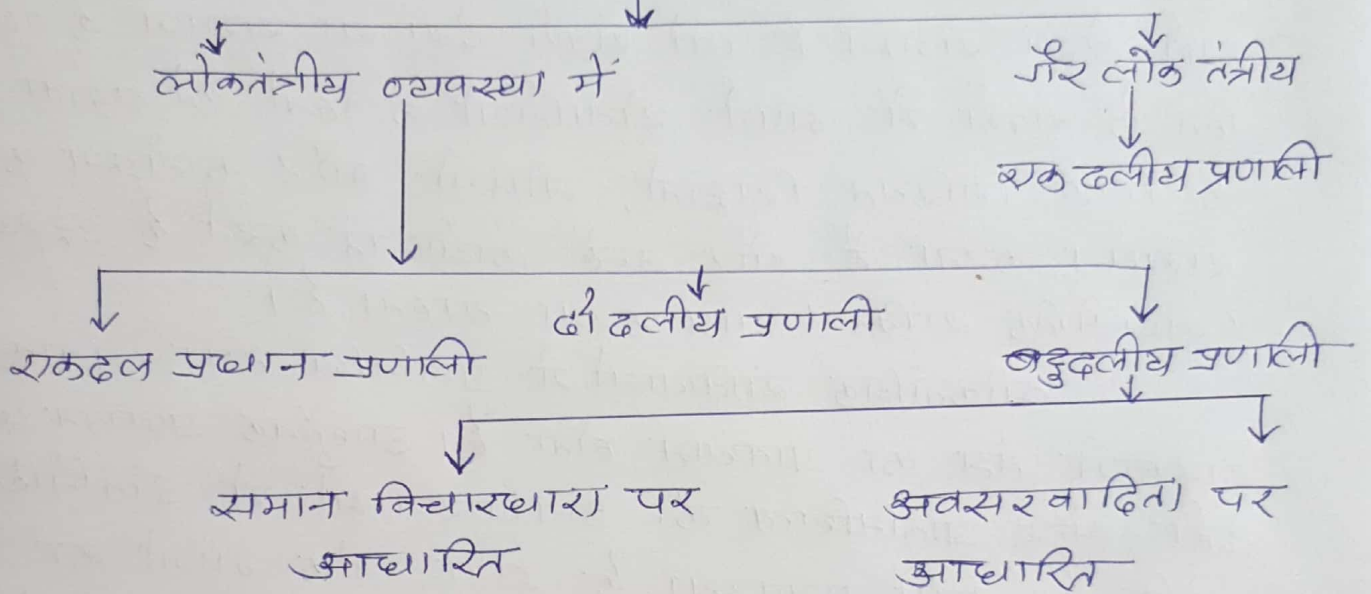 लोकतंत्रीय व्यवस्था में
गैर लोक तंत्रीय
एक दलीय प्रणाली
दो दलीय प्रणाली
एकदल प्रधान प्रणाली
बहुदलीय प्रणाली
समान विचारधारा पर
आधारित
अवसरवादिता पर
आधारित